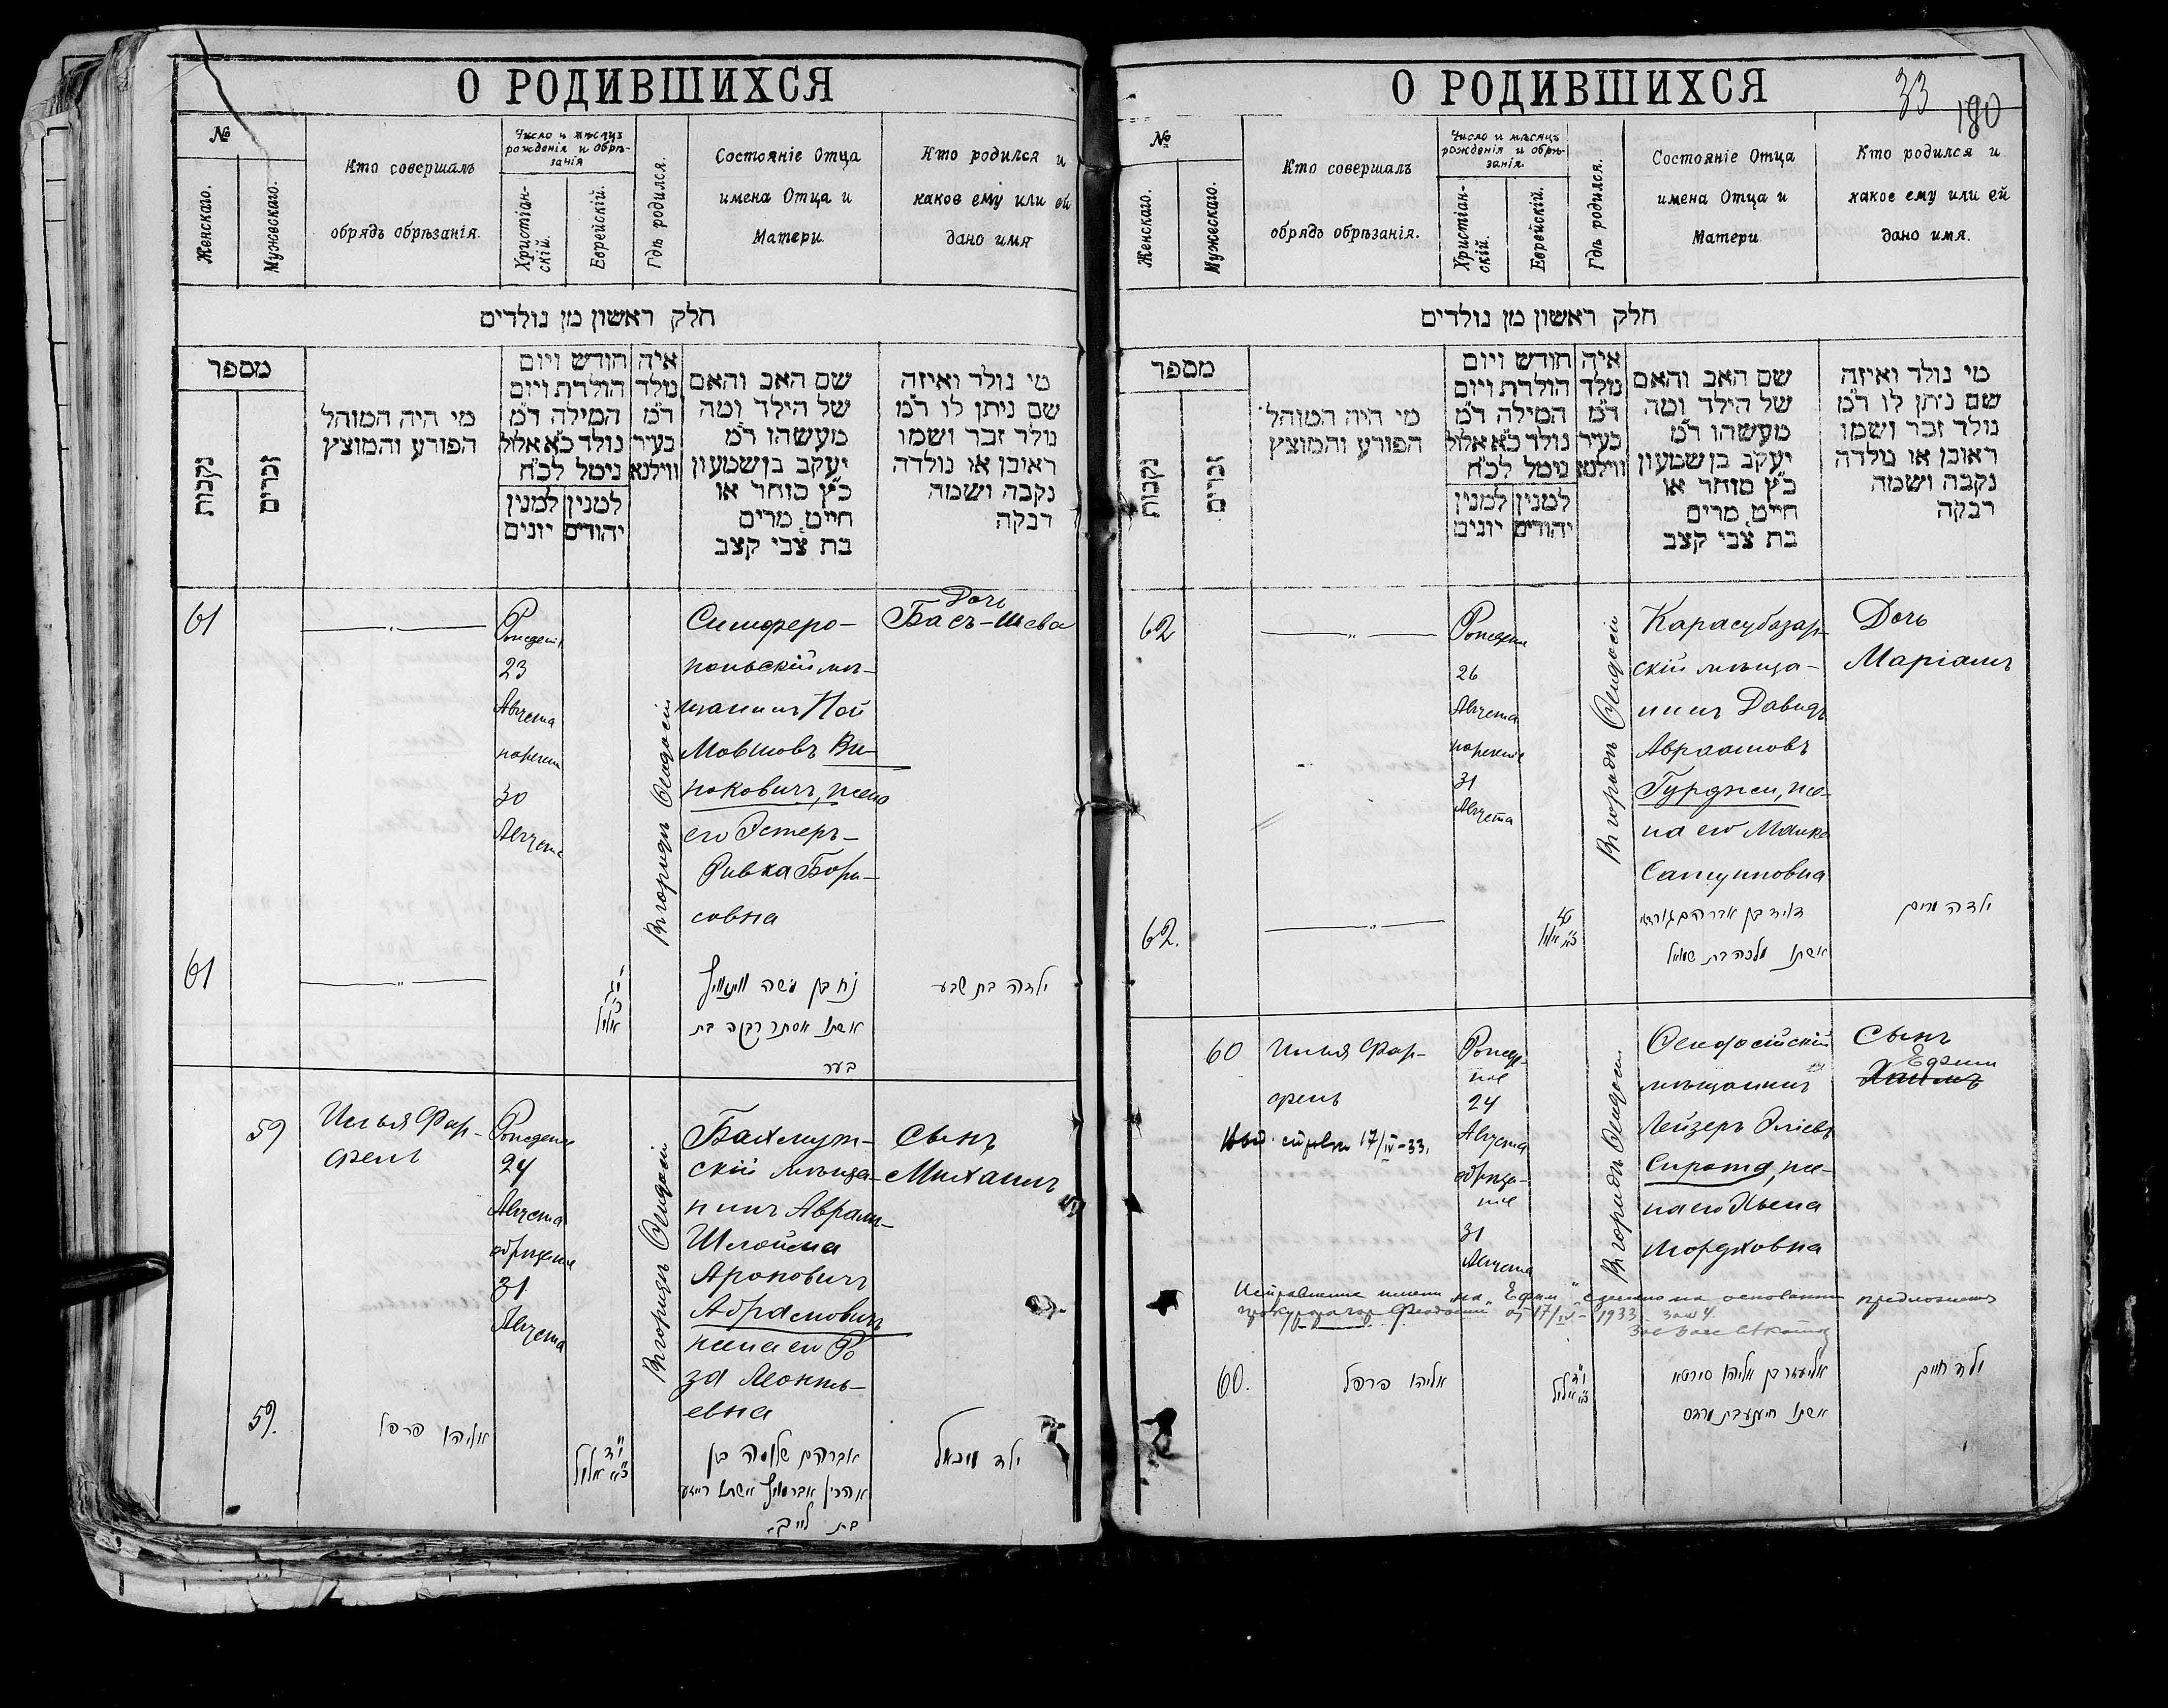 О РОДИВШИХСЯ
№
Женскаго.
Мужескаго.
Кто совершалъ
обрядъ обрѣзанія.
Число и мѣсяцъ
рожденія и обрѣ-
занія
Христіан-
скій.
Еврейскій.
Гдѣ родился.
Состояніе Отца
имена Отца и
Матери.
Кто родился и
какое ему или ей
дано имя
חלק ראשון מן נולדים
מספר
נקבות
זכרים
מי היה המוהל
הפורע והמוצץ
חודש ויום
הולדת ויום
המילה ד"מ
נולד כ"א אלול
נימל לכ"ח
למנין למנין
יהודים יונים
איה
נולד
ד"מ
בעיר
ווילנא
שם האב והאם
של הילד ומה
מעשהו ד"מ
יעקב בן שמעון
כ"ץ סוחר או
חייט מרים
בת צבי קצב
מי נולד ואיזה
שם ניתן לו ד"מ
נולד זכר ושמו
ראובן או נולדה
נקבה ושמה
רבקה
61
Рожденія
23
Августа
нареченія
30
Августа
Въ городѣ Ѳеодосіи
Симферо-
польскій мѣ-
щанинъ Ной
Мовшовъ Ви-
ноковичъ, жена
его Эстеръ-
Ривка Бори-
совна
Дочь
Басъ-Шева
61
אלול
נח בן משה
אשתו אסתר רבקה בת
בער
ילדה בת שבע
59
Илья Фар-
фель
Рожденія
24
Августа
обрѣзаніе
31
Августа
Въ городѣ Ѳеодосіи
Бахмут-
скій мѣща-
нинъ Аврам-
Шлойма
Ароновичъ
Абрамовичъ
жена его Ро
за Леонть-
евна
Сынъ
Михаилъ
59.
אליהו פרפל
אלול
אברהם שלמה בן
אהרן אברמוביץ אשתו רייזע
בת לייב
ילד מיכאל
О РОДИВШИХСЯ
33
180
№
Женскаго.
Мужескаго.
Кто совершалъ
обрядъ обрѣзанія.
Число и мѣсяцъ
рожденія и обрѣ-
занія.
Христіан-
скій.
Еврейскій.
Гдѣ родился.
Состояніе Отца
имена Отца и
Матери
Кто родился и
какое ему или ей
дано имя.
חלק ראשון מן נולדים
מספר
נקבות
זכרים
מי היה המוהל
הפורע והמוצץ
חודש ויום
הולדת ויום
המילה ד"מ
נולד כ"א אלול
נימל לכ"ח
למנין למנין
יהודים יונים
איה
נולד
ד"מ
בעיר
ווילנא
שם האב והאם
של הילד ומה
מעשהו ד"מ
יעקב בן שמעון
כ"ץ סוחר או
חייט מרים
בת צבי קצב
מי נולד ואיזה
שם ניתן לו ד"מ
נולד זכר ושמו
ראובן או נולדה
נקבה ושמה
רבקה
62
Рожденія
26
Августа
нареченіе
31
Августа
Въ городѣ Ѳеодосіи
Карасубазар-
скій мѣща-
нинъ Давидъ
Авраамовъ
Гурджи, же-
на его Малка
Самуиловна
Дочь
Маріамъ
62.
אלול
דוד בן אברהם גורדזי
אשתו מלכה בת שמואל
ילדה מרים
60
Илья Фар-
фель
17/IV-33.
Рожде-
ніе
24
Августа
обрѣза-
ніе
31
Августа
Въ городѣ Ѳеодосіи
Ѳеодосійскій
мѣщанинъ
Лейзеръ Эліевъ
Сирота, же-
на его Хьена
Мордковна
Сынъ
Ефим
Хаимъ
Исправление имени на „Ефим" сделано на основании предложения
прокурора гор Феодосии от 17/IV-1933
60.
אליהו פרפל
אלול
אליעזר בן אליהו סירטא
אשתו
ילד חיים